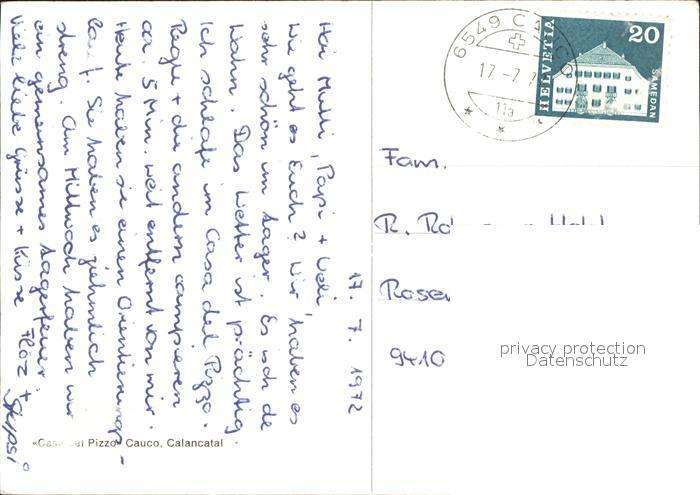 17. 7. 1972
Hoi Mutti, Papi + Ueli,
Wie geht es Euch? Wir haben es
sehr schön im Lager. Es isch de
Wahn. Das Wetter ist prächtig.
Ich schlafe im Casa del Pizzo.
Regu + die andern campieren
ca. 5 Min. weit entfernt von mir.
Heute haben sie einen Orientierungs-
lauf. Sie haben es ziehmlich
streng. Am Mittwoch haben wir
ein gemeinsames Lagerfeuer.
Viele liebe Grüsse + Küsse
«Casa del Pizzo» Cauco, Calancatal
6549 CAUCO
17.-7.7
11a
HELVETIA
20
SAMEDAN
Fam.
R.
9410
privacy protection
Datenschutz